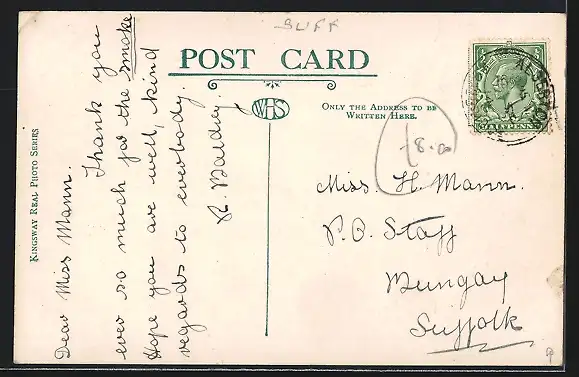 BUFF
POST CARD
WHS
ONLY THE ADDRESS TO BE
WRITTEN HERE.
KINGSWAY REAL PHOTO SERIES
Dear Miss Mann.
Thank you
ever so much for the smoke
Hope you are well, kind
regards to everbody.
R.
18.00
Miss. H. Mann.
P.O. Staff
Bungay
Suffolk
HALFPENNY